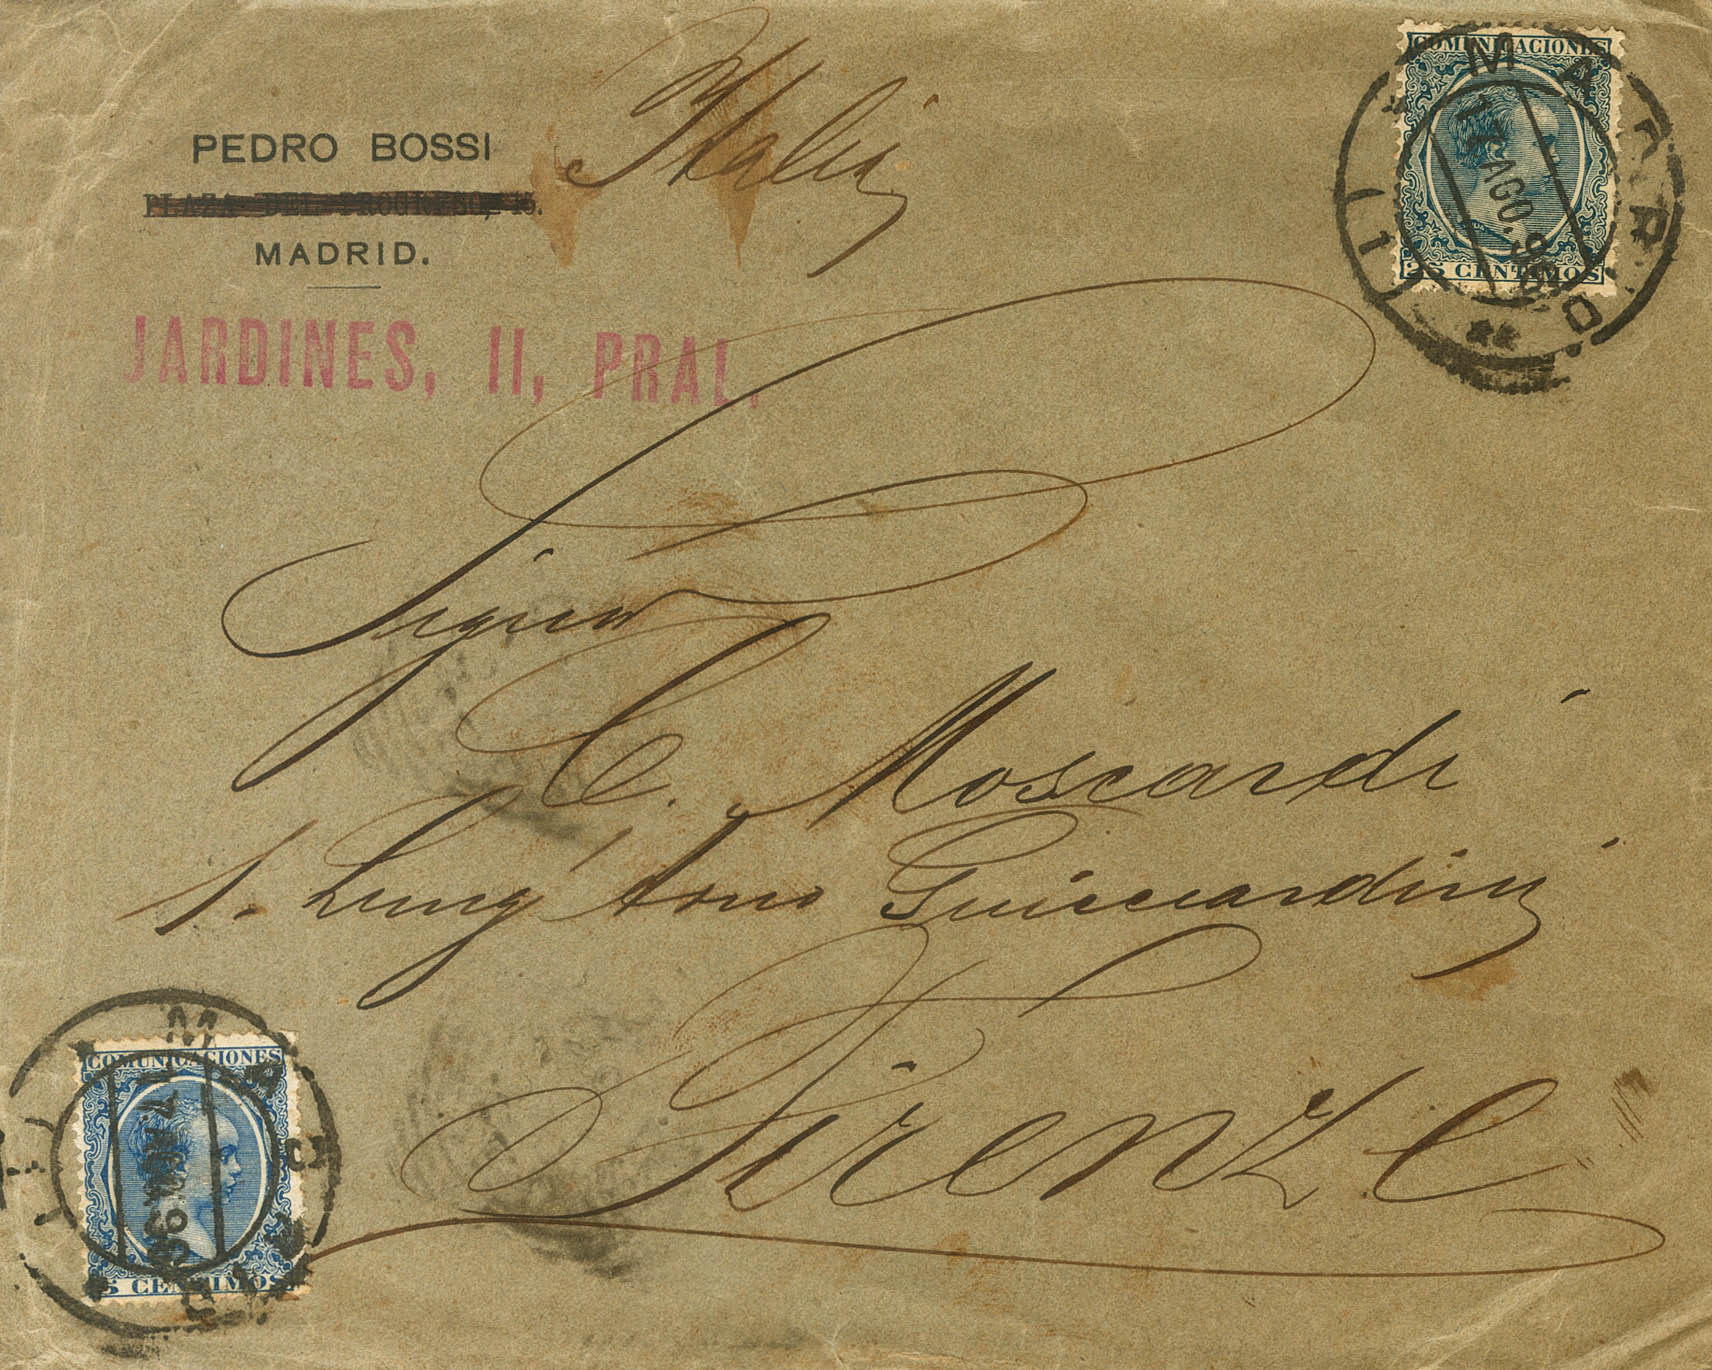 PEDRO BOSSI
PLAZA DEL PROGRESO, 15.
MADRID.
JARDINES, 11, PRAL.
Italia
COMUNICACIONES
25 CENTIMOS
MADRID
AGO. 96
Signor
C. Moscardi
1. Lung' Arno Guicciardini
Firenze
COMUNICACIONES
25 CENTIMOS